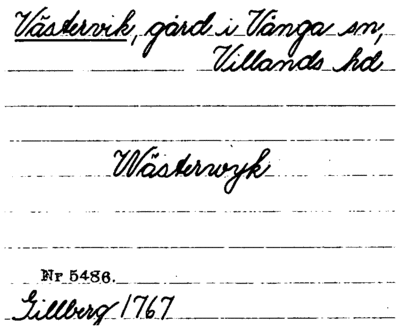 Västervik, gård i Vånga sn,
Villands hd
Wästerwyk
Nr 5486.
Gillberg 1767